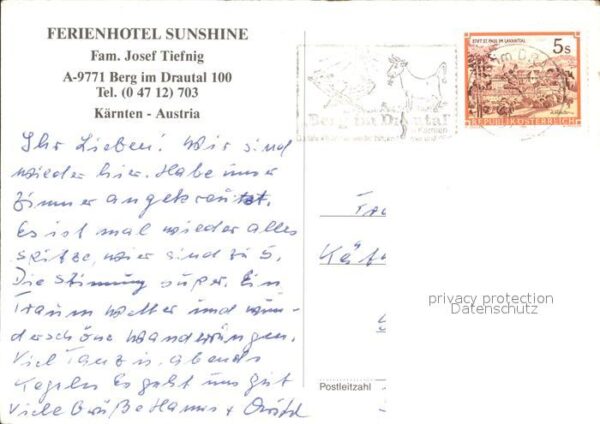 FERIENHOTEL SUNSHINE
Fam. Josef Tiefnig
A-9771 Berg im Drautal 100
Tel. (0 47 12) 703
Kärnten - Austria
STIFT ST. PAUL IM LAVANTTAL
5 S
REPUBLIK ÖSTERREICH
Berg im Drautal
Kärnten
Ihr Lieben! Wir sind
wieder hier. Habe unser
Zimmer angekreuzt.
Es ist mal wieder alles
spitze, wir sind zu 5.
Die Stimmung super. Ein
Traum wetter und wun-
derschöne wanderungen.
Viel Tanz u. abends
Kegeln Es geht uns gut
Viele Grüße Hannes +
Postleitzahl
privacy protection
Datenschutz